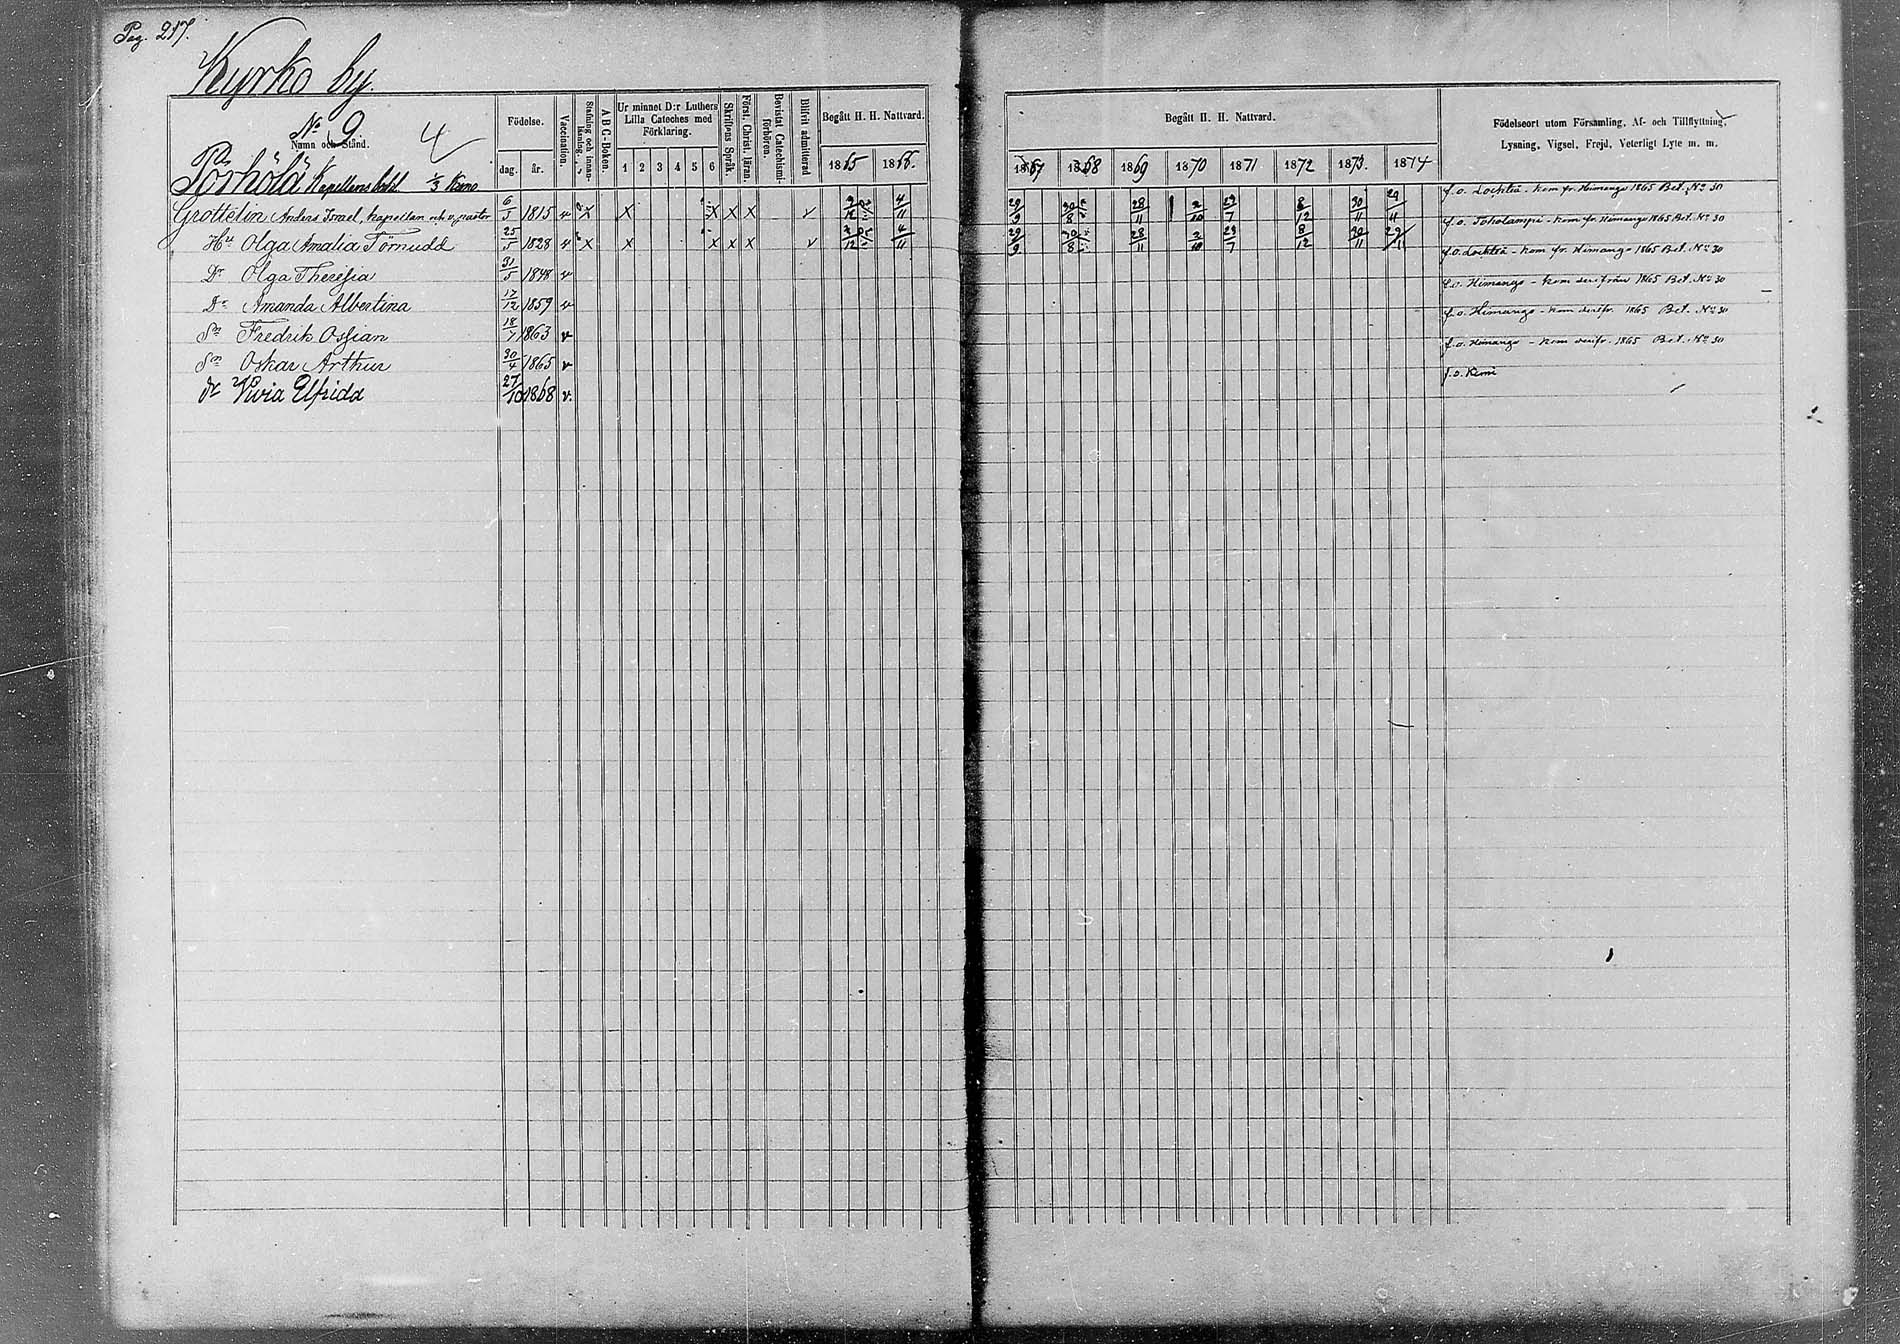 Pag. 217.
Kyrko by.
No 9
Namn och Stånd.
4
Födelse.
dag. år.
Vaccination.
Stafning och innan-läsning.
A B C-Boken.
Ur minnet D:r Luthers Lilla Cateches med Förklaring.
1 2 3 4 5 6
Skriftens Språk.
Förest. Christ. läran.
Bevistat Catechismi-förhören.
Blifvit admitterad
Begått H. H. Nattvard.
1865 1866.
Begått H. H. Nattvard.
1867 1868 1869 1870 1871 1872 1873. 1874
Födelseort utom Församling, Af- och Tillflyttning,
Lysning, Vigsel, Frejd, Veterligt Lyte m. m.
Pörhölä Kapellansbohl 1/3
Grottelin Anders Israel, kapellan och v. pastor 6/5 1815 v X X X X X v 4/11 29/9 30/8 28/11 2/10 29/7 8/12 30/11 29/11 f. o. Lochteå - kom fr. Himango 1865 Bet. No 30
Hu Olga Amalia Törnudd 25/5 1828 v X X X X X v 4/11 29/9 30/8 28/11 2/10 29/7 8/12 30/11 29/11 f. o. Toholampi - kom fr. Himango 1865 Bet. No 30
Dr Olga Theresia 31/5 1848 v f. o. Lochteå - kom fr. Himango 1865 Bet. No 30
Dr Amanda Albertina 17/12 1859 v f. o. Himango - kom derifrån 1865 Bet. No 30
Sn Fredrik Ossian 18/7 1863 v f. o. Himango - kom derifr. 1865 Bet. No 30
Sn Oskar Arthur 30/4 1865 v f. o. Himango - kom derifr. 1865 Bet. No 30
dr Vivia Elfrida 27/10 1868 v. f. o. Kemi